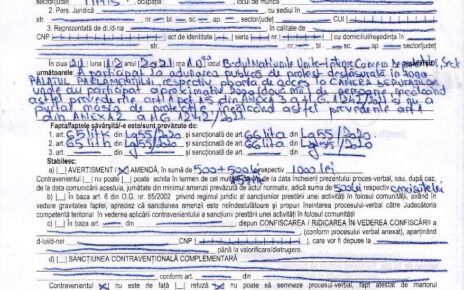 sector/județ
2. Pers. Juridică cu sediul în
str. nr. bl. sc. ap. sector/județ CUI
3. Reprezentată de dl/d-na, în calitate de
CNP act de identitate seria nr. cu domiciliul/reședința în
str. nr. bl. sc. et. ap. sector/județ
În ziua 21 12 2021 ora B-dul Națiunile Unite Sect
următoarele. A participat la adunarea publică de protest desfășurată în zona
PALATUL PARLAMENTULUI respectiv poarta de acces la CAMERA DEPUTAȚILOR
unde au participat aproximativ 2000 (două mii) de persoane, încălcând
astfel prevederile art 1 pct 15 din ANEXA 2 a HG 1242/2021 și nu a
purtat masca de protecție încălcând astfel prevederile art 1
din ANEXA 2 a HG 1242/2021
Fapta/faptele săvârșită/-e este/sunt prevăzute de:
1. art. 65 lit k din Lg 55/2020 și sancționată de art. 66 lit a din Lg 55/2020
2. art. 65 lit h din Lg 55/2020 și sancționată de art. 66 lit a din Lg 55/2020
3. art. din și sancționată de art. din
Stabilesc:
a) AVERTISMENT / X AMENDĂ, în sumă de 500 + 500 lei respectiv 1000 lei
Contravenientul nu poate / X poate achita în termen de cel mult de la data înmânării prezentului proces-verbal, sau, după caz,
de la data comunicării acestuia, jumătate din minimul amenzii prevăzută de actul normativ, adică suma de 500 lei respectiv cincisutelei
b) În baza art. 6 din O.G. nr. 55/2002 privind regimul juridic al sancțiunii prestării unei activități în folosul comunității, având în
vedere gravitatea faptei, apreciez că sancțiunea amenzii este neîndestulătoare și dispun înaintarea prezentului proces-verbal către Judecătoria
competentă teritorial în vederea aplicării contravenientului a sancțiunii prestării unei activități în folosul comunității
c) În baza art. din, dispun CONFISCAREA / RIDICAREA ÎN VEDEREA CONFISCĂRII a
(conform procesului verbal anexat), aparținând
d-lui/d-nei CNP, care vor fi depuse la
până la valorificare/distrugere.
d) SANCȚIUNEA CONTRAVENȚIONALĂ COMPLEMENTARĂ
, conform art. din
Contravenientul X nu este de față / refuză / nu poate să semneze procesul-verbal, fapt atestat de martorul